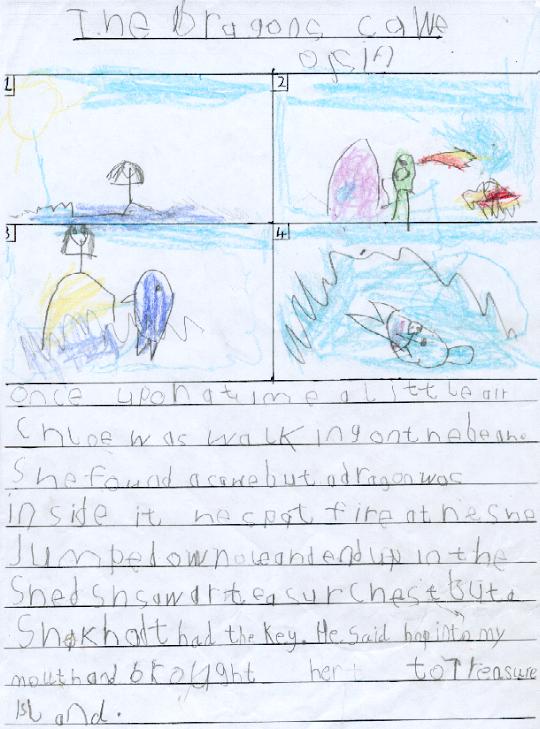 The Dragons cawe
1
2
3
4
once upon a time a little
Chloe was walking on the
She found a cawe but a dragon was
inside it he spat fire at he she
Jumped down and end up in the
saw a chest but a
had the key. He said hop into my
mouth and brought her to Treasure
Isl and.